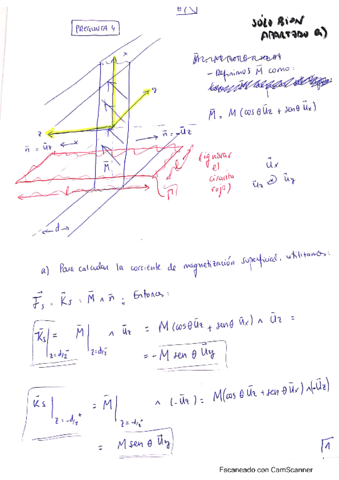 SÓLO BIEN
APARTADO a)
PREGUNTA 4
- Definimos M⃗ como:
M⃗ = M (cosθ u⃗z + senθ u⃗x)
x
z
y
n⃗ = u⃗z
n⃗ = -u⃗z
M⃗
(ignorar
el
circuito
rojo)
u⃗x
u⃗z u⃗y
d
a) Para calcular la corriente de magnetización superficial, utilizamos:
J⃗s = K⃗s = M⃗ ∧ n⃗ ; Entonces:
K⃗s|z=d/2⁻ = M⃗|z=d/2⁻ ∧ u⃗z = M(cosθ u⃗z + senθ u⃗x) ∧ u⃗z =
= - M senθ u⃗y
K⃗s|z=-d/2⁺ = M⃗|z=-d/2⁺ ∧ (-u⃗z) = M(cosθ u⃗z + senθ u⃗x) ∧ (-u⃗z)
= M senθ u⃗y
1
Escaneado con CamScanner